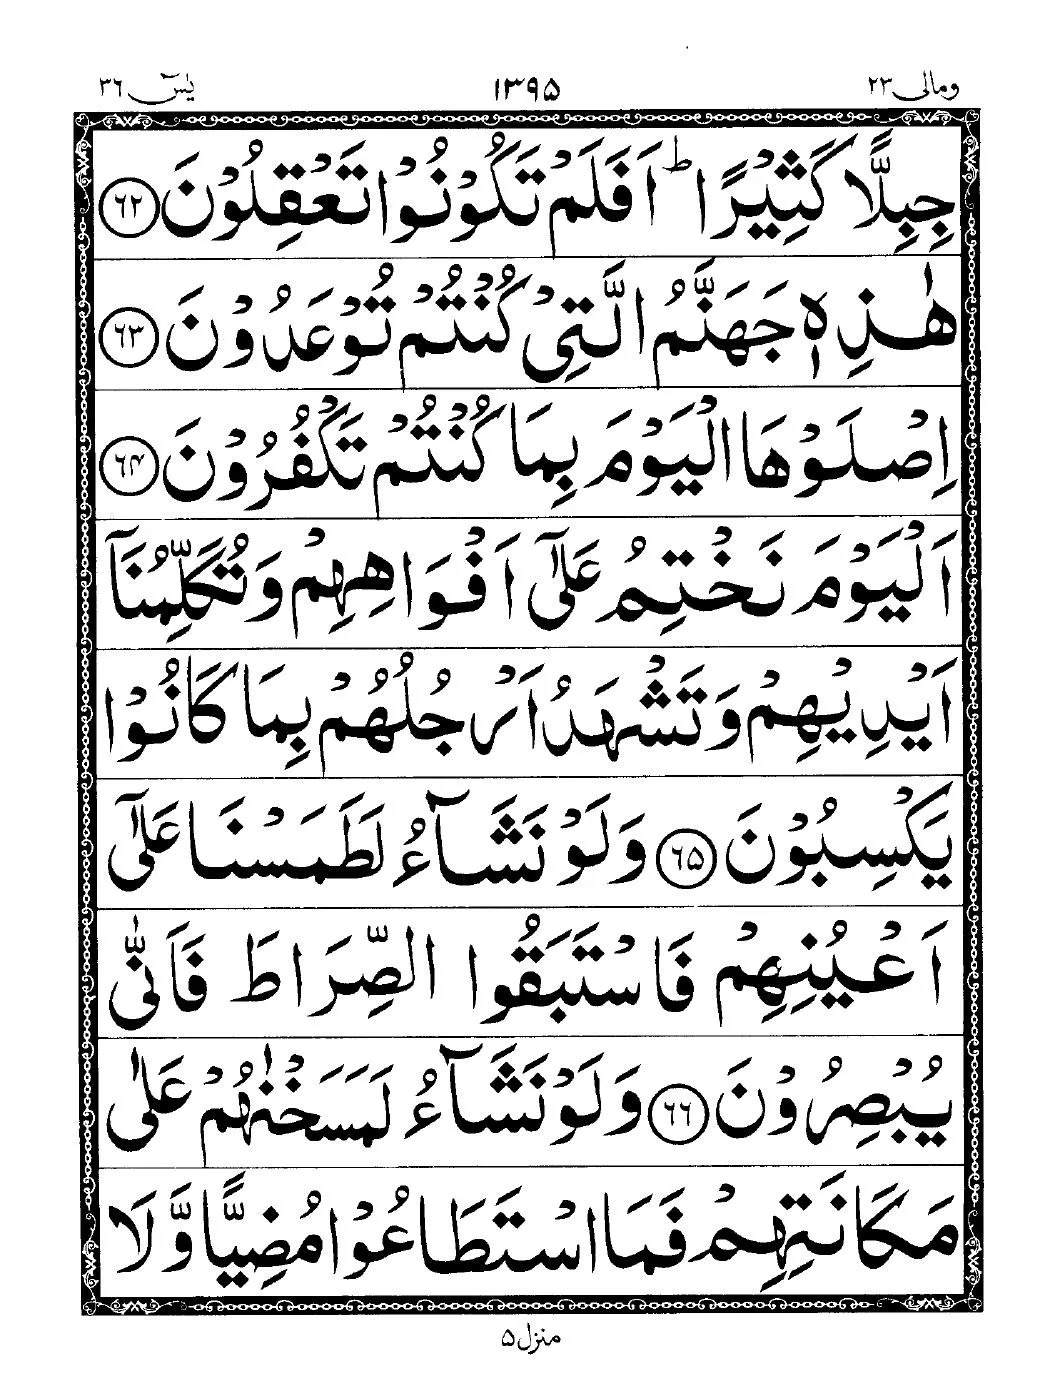 یٰسٓ ٣٦ ١٣٩٥ ومالی ٢٣
جِبِلًّا كَثِيْرًا ؕ اَفَلَمْ تَكُوْنُوْا تَعْقِلُوْنَ ٦٢
هٰذِهٖ جَهَنَّمُ الَّتِيْ كُنْتُمْ تُوْعَدُوْنَ ٦٣
اِصْلَوْهَا الْيَوْمَ بِمَا كُنْتُمْ تَكْفُرُوْنَ ٦۴
اَلْيَوْمَ نَخْتِمُ عَلٰٓى اَفْوَاهِهِمْ وَتُكَلِّمُنَاۤ
اَيْدِيْهِمْ وَتَشْهَدُ اَرْجُلُهُمْ بِمَا كَانُوْا
يَكْسِبُوْنَ ٦٥ وَلَوْ نَشَآءُ لَطَمَسْنَا عَلٰٓى
اَعْيُنِهِمْ فَاسْتَبَقُوا الصِّرَاطَ فَاَنّٰى
يُبْصِرُوْنَ ٦٦ وَلَوْ نَشَآءُ لَمَسَخْنٰهُمْ عَلٰى
مَكَانَتِهِمْ فَمَا اسْتَطَاعُوْا مُضِيًّا وَّلَا
منزل ٥